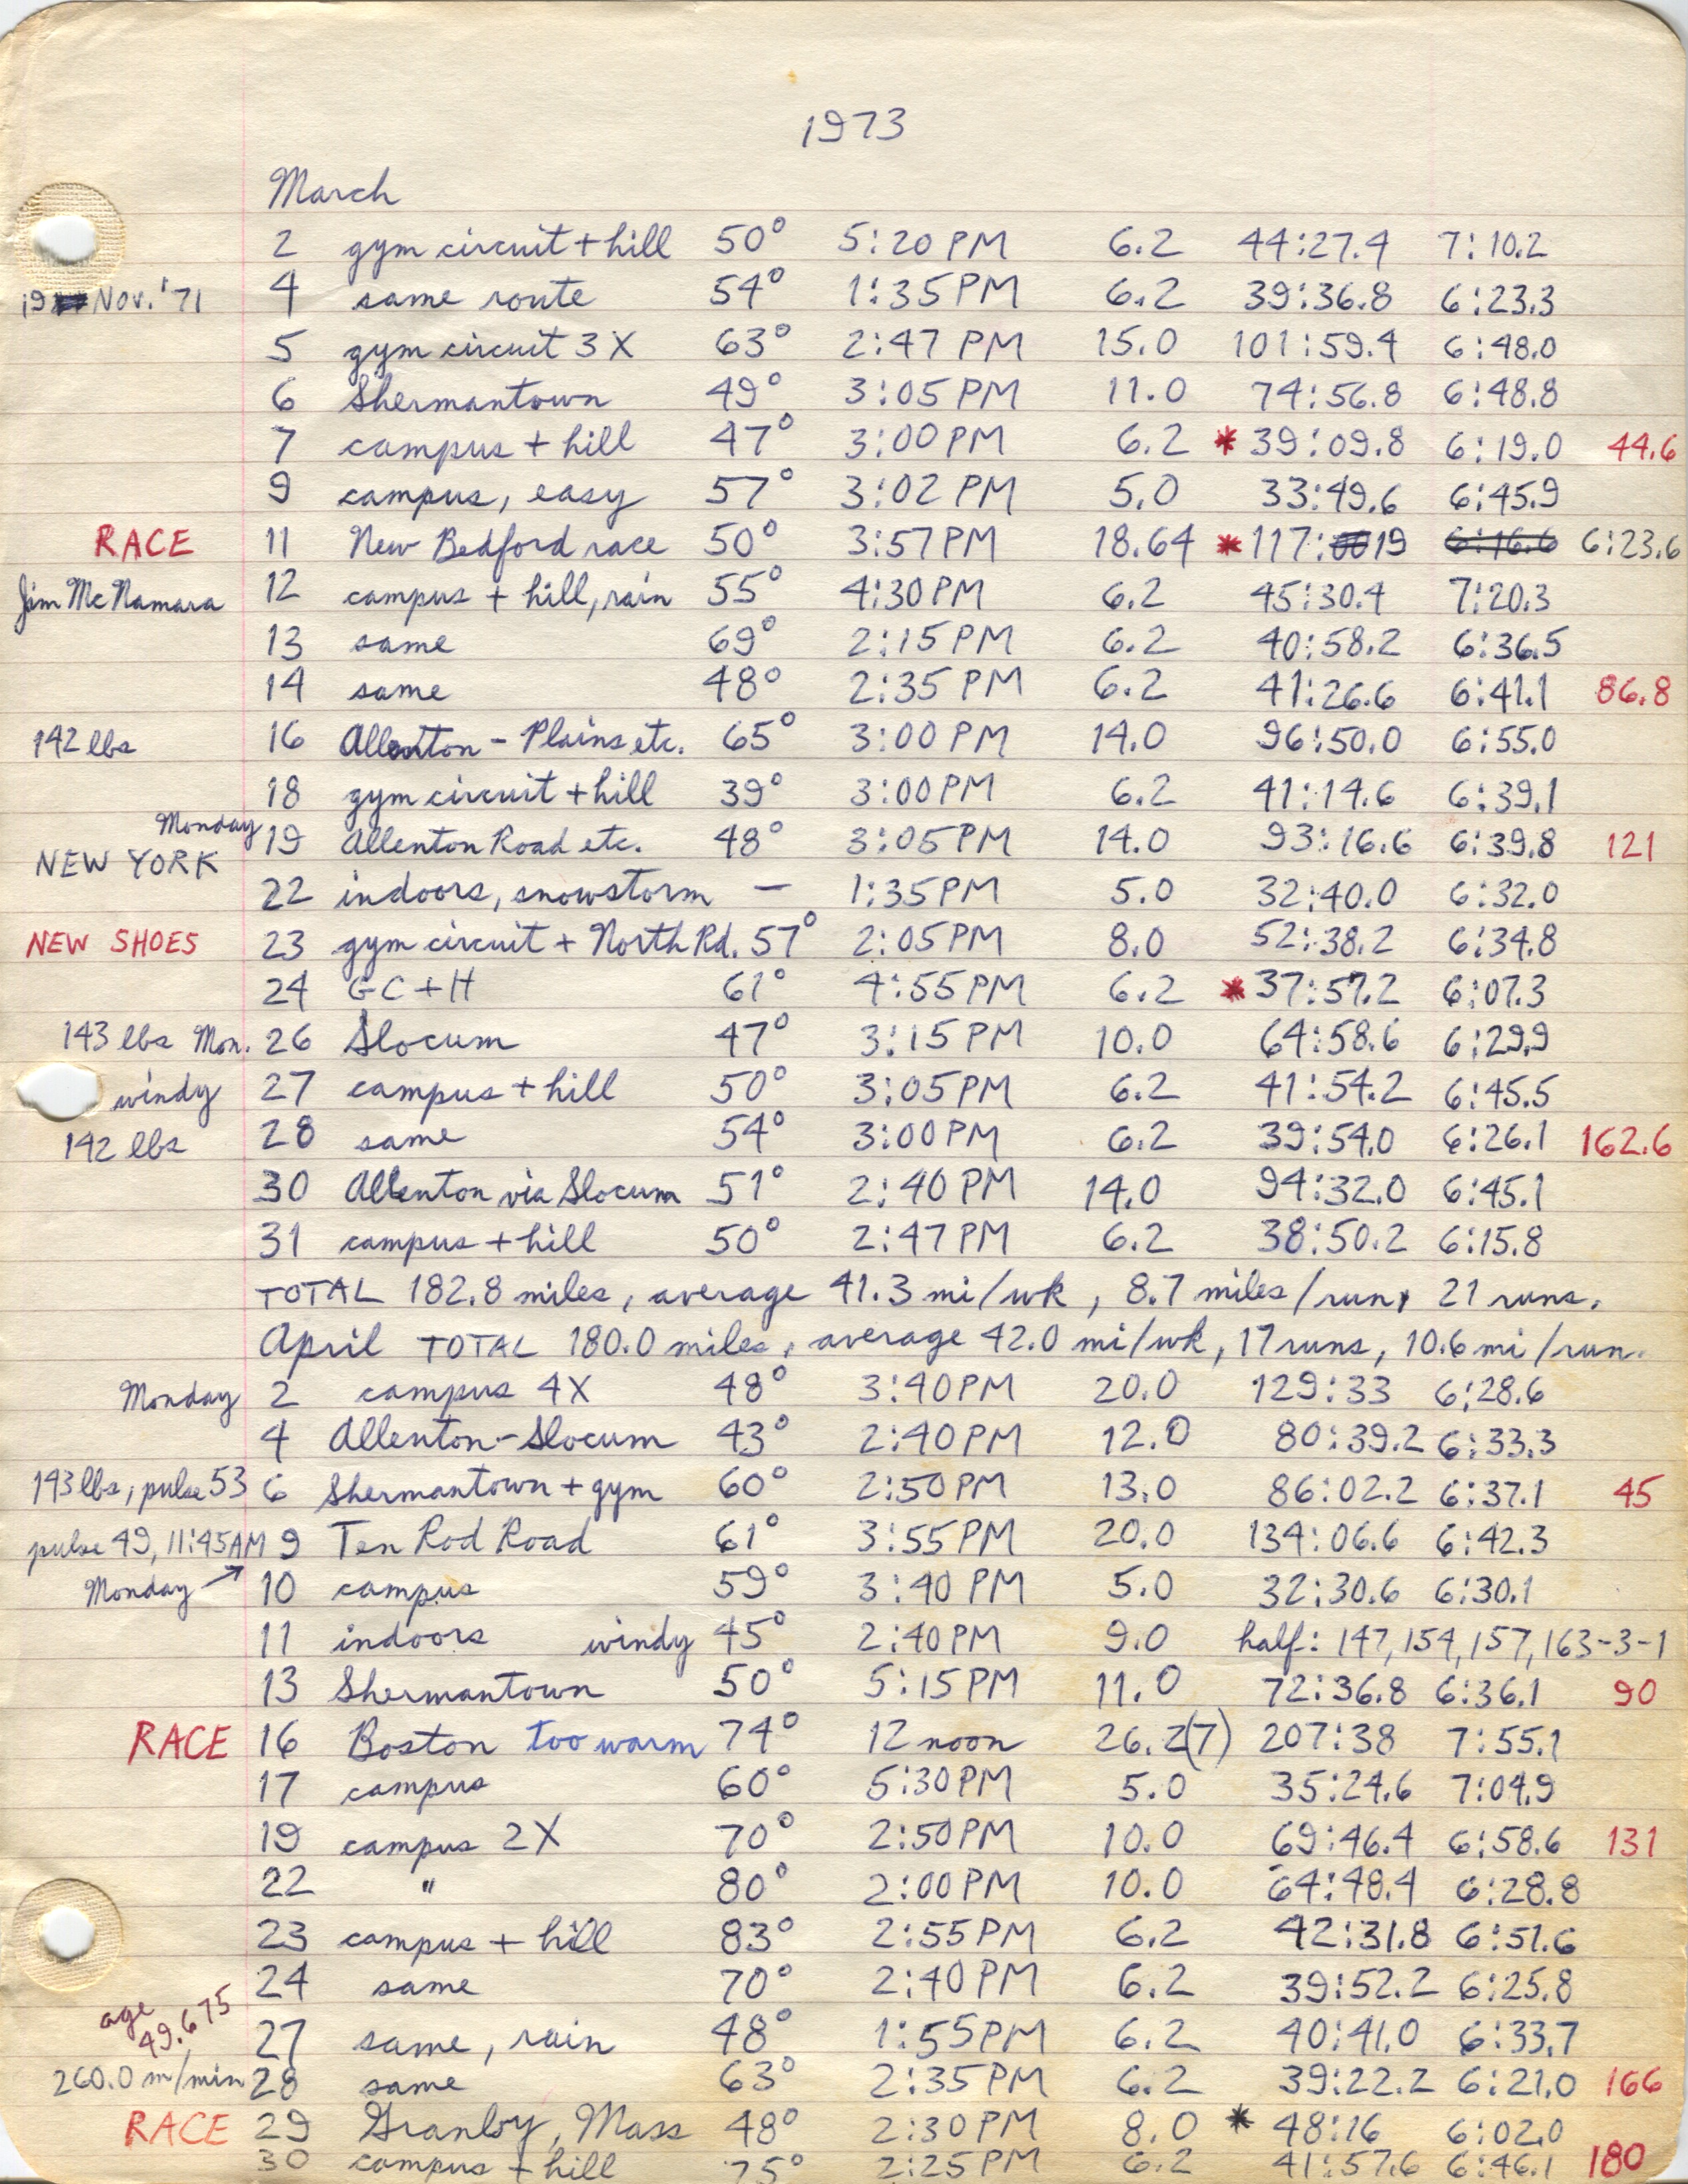 1973
March
2 gym circuit + hill 50° 5:20 PM 6.2 44:27.4 7:10.2
Nov. '71 4 same route 54° 1:35 PM 6.2 39:36.8 6:23.3
5 gym circuit 3X 63° 2:47 PM 15.0 101:59.4 6:48.0
6 Shermantown 49° 3:05 PM 11.0 74:56.8 6:48.8
7 campus + hill 47° 3:00 PM 6.2 * 39:09.8 6:19.0 44.6
9 campus, easy 57° 3:02 PM 5.0 33:49.6 6:45.9
RACE 11 New Bedford race 50° 3:57 PM 18.64 * 117:19 6:16.6 6:23.6
Jim McNamara 12 campus + hill, rain 55° 4:30 PM 6.2 45:30.4 7:20.3
13 same 69° 2:15 PM 6.2 40:58.2 6:36.5
14 same 48° 2:35 PM 6.2 41:26.6 6:41.1 86.8
142 lbs 16 Allenton - Plains etc. 65° 3:00 PM 14.0 96:50.0 6:55.0
18 gym circuit + hill 39° 3:00 PM 6.2 41:14.6 6:39.1
Monday 19 Allenton Road etc. 48° 3:05 PM 14.0 93:16.6 6:39.8 121
NEW YORK
22 indoors, snowstorm — 1:35 PM 5.0 32:40.0 6:32.0
NEW SHOES 23 gym circuit + North Rd. 57° 2:05 PM 8.0 52:38.2 6:34.8
24 GC + H 61° 4:55 PM 6.2 * 37:57.2 6:07.3
143 lbs Mon. 26 Slocum 47° 3:15 PM 10.0 64:58.6 6:29.9
windy 27 campus + hill 50° 3:05 PM 6.2 41:54.2 6:45.5
142 lbs 28 same 54° 3:00 PM 6.2 39:54.0 6:26.1 162.6
30 Allenton via Slocum 51° 2:40 PM 14.0 94:32.0 6:45.1
31 campus + hill 50° 2:47 PM 6.2 38:50.2 6:15.8
TOTAL 182.8 miles, average 41.3 mi/wk, 8.7 miles/run, 21 runs.
April TOTAL 180.0 miles, average 42.0 mi/wk, 17 runs, 10.6 mi/run.
Monday 2 campus 4X 48° 3:40 PM 20.0 129:33 6:28.6
4 Allenton-Slocum 43° 2:40 PM 12.0 80:39.2 6:33.3
143 lbs, pulse 53 6 Shermantown + gym 60° 2:50 PM 13.0 86:02.2 6:37.1 45
pulse 49, 11:45 AM 9 Ten Rod Road 61° 3:55 PM 20.0 134:06.6 6:42.3
Monday → 10 campus 59° 3:40 PM 5.0 32:30.6 6:30.1
11 indoors windy 45° 2:40 PM 9.0 half: 147, 154, 157, 163-3-1
13 Shermantown 50° 5:15 PM 11.0 72:36.8 6:36.1 90
RACE 16 Boston too warm 74° 12 noon 26.2(7) 207:38 7:55.1
17 campus 60° 5:30 PM 5.0 35:24.6 7:04.9
19 campus 2X 70° 2:50 PM 10.0 69:46.4 6:58.6 131
22 " 80° 2:00 PM 10.0 64:48.4 6:28.8
23 campus + hill 83° 2:55 PM 6.2 42:31.8 6:51.6
24 same 70° 2:40 PM 6.2 39:52.2 6:25.8
age 49.675
27 same, rain 48° 1:55 PM 6.2 40:41.0 6:33.7
260.0 m/min 28 same 63° 2:35 PM 6.2 39:22.2 6:21.0 166
RACE 29 Granby, Mass 48° 2:30 PM 8.0 * 48:16 6:02.0
30 campus + hill 75° 2:25 PM 6.2 41:57.6 6:46.1 180